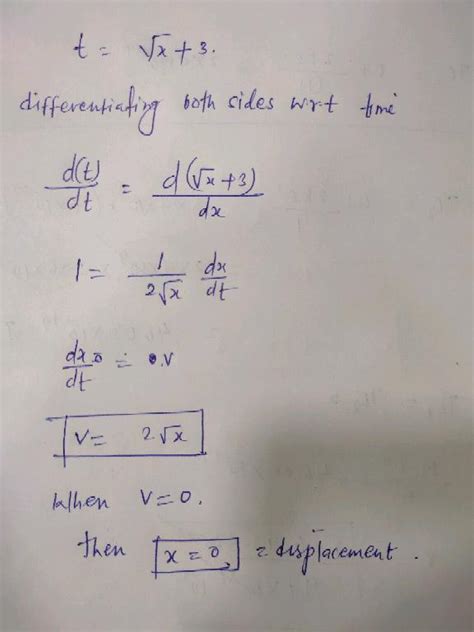 t = √x + 3.
differentiating both sides w.r.t time
d(t)/dt = d(√x+3)/dx
1 = 1/2√x dx/dt
dx/dt = v
V = 2√x
When V=0.
then x = 0 = displacement.